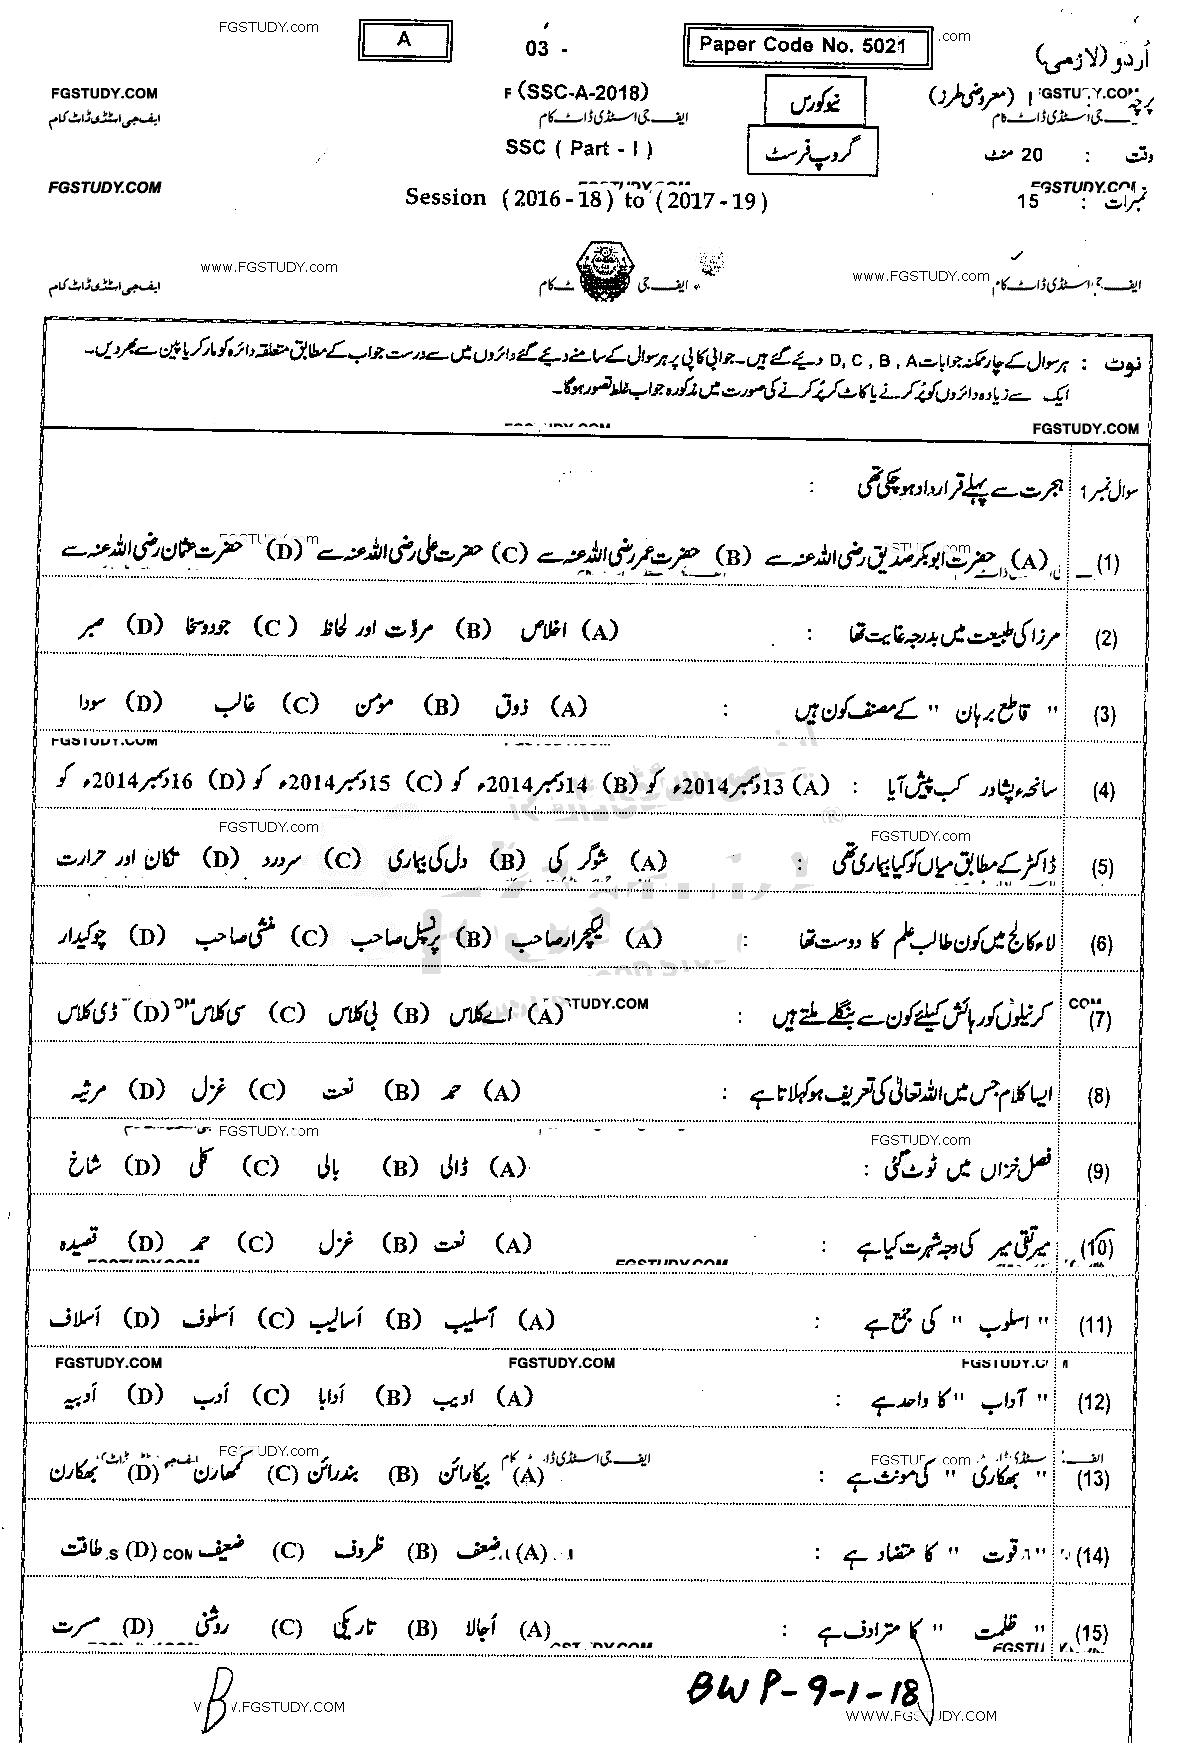 FGSTUDY.com
A
03 -
Paper Code No. 5021
.com
اُردو (لازمی)
FGSTUDY.COM
F (SSC-A-2018)
نیو کورس
پرچہ I (معروضی طرز)
ایف جی اسٹڈی ڈاٹ کام
ایف جی اسٹڈی ڈاٹ کام
SSC ( Part - I )
گروپ فرسٹ
وقت : 20 منٹ
FGSTUDY.COM
FGSTUDY.COM
Session (2016-18) to (2017-19)
نمبرات : 15
www.FGSTUDY.com
www.FGSTUDY.com
ایف جی اسٹڈی ڈاٹ کام
ایف جی اسٹڈی ڈاٹ کام
نوٹ : ہر سوال کے چار ممکنہ جوابات D, C, B, A دیئے گئے ہیں۔ جوابی کاپی پر ہر سوال کے سامنے دیئے گئے دائروں میں سے درست جواب کے مطابق متعلقہ دائرہ کو مارکر یا پین سے بھر دیں۔
ایک سے زیادہ دائروں کو پُر کرنے یا کاٹ کر پُر کرنے کی صورت میں مذکورہ جواب غلط تصور ہوگا۔
FGSTUDY.COM
سوال نمبر 1 ہجرت سے پہلے قرار داد ہو چکی تھی :
(1) (A) حضرت ابوبکر صدیق رضی اللہ عنہ سے (B) حضرت عمر رضی اللہ عنہ سے (C) حضرت علی رضی اللہ عنہ سے (D) حضرت عثمان رضی اللہ عنہ سے
(2) مرزا کی طبیعت میں بدرجہ غایت تھا : (A) اخلاص (B) مروّت اور لحاظ (C) جود و سخا (D) صبر
(3) " قاطع برہان " کے مصنف کون ہیں : (A) ذوق (B) مومن (C) غالب (D) سودا
FGSTUDY.COM
(4) سانحہء پشاور کب پیش آیا : (A) 13 دسمبر 2014ء کو (B) 14 دسمبر 2014ء کو (C) 15 دسمبر 2014ء کو (D) 16 دسمبر 2014ء کو
FGSTUDY.com
FGSTUDY.com
(5) ڈاکٹر کے مطابق میاں کو کیا بیماری تھی : (A) شوگر کی (B) دل کی بیماری (C) سردرد (D) تکان اور حرارت
(6) لاء کالج میں کون طالب علم کا دوست تھا : (A) لیکچرار صاحب (B) پرنسپل صاحب (C) منشی صاحب (D) چوکیدار
(7) کرنیلوں کو رہائش کیلئے کون سے بنگلے ملتے ہیں : (A) اے کلاس (B) بی کلاس (C) سی کلاس (D) ڈی کلاس
(8) ایسا کلام جس میں اللہ تعالیٰ کی تعریف ہو کہلاتا ہے : (A) حمد (B) نعت (C) غزل (D) مرثیہ
FGSTUDY.com
FGSTUDY.com
(9) فصل خزاں میں ٹوٹ گئی : (A) ڈالی (B) بالی (C) کلی (D) شاخ
(10) میر تقی میر کی وجہ شہرت کیا ہے : (A) نعت (B) غزل (C) حمد (D) قصیدہ
FGSTUDY.COM
FGSTUDY.COM
(11) " اسلوب " کی جمع ہے : (A) اَسلیب (B) اَسالیب (C) اَسلوف (D) اَسلاف
FGSTUDY.COM
FGSTUDY.COM
(12) " آداب " کا واحد ہے : (A) ادیب (B) اَدابا (C) اَدب (D) اَدیبہ
FGSTUDY.com
ایف جی اسٹڈی ڈاٹ کام
FGSTUDY.com
(13) " بھکاری " کی مونث ہے : (A) بیکارائن (B) بندرائن (C) کمہارن (D) بھکارن
(14) " قوت " کا متضاد ہے : (A) ضعف (B) ظروف (C) ضعیف (D) طاقت
(15) " ظلمت " کا مترادف ہے : (A) اُجالا (B) تاریکی (C) روشنی (D) مسرت
BWP-9-1-18
B
WWW.FGSTUDY.COM